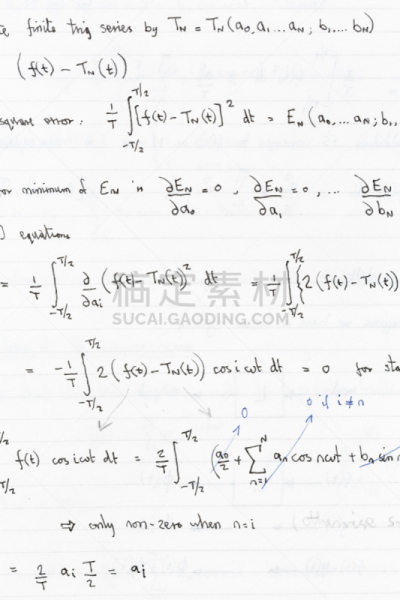 finite trig series by T_N = T_N(a_0, a_1 ... a_N; b_1, ... b_N)
(f(t) - T_N(t))
square error: 1/T ∫_{-T/2}^{T/2} [f(t) - T_N(t)]^2 dt = E_N(a_0, ... a_N; b_1,
for minimum of E_N is ∂E_N/∂a_0 = 0, ∂E_N/∂a_1 = 0, ... ∂E_N/∂b_N
) equations
= 1/T ∫_{-T/2}^{T/2} ∂/∂a_i (f(t) - T_N(t))^2 dt = 1/T ∫_{-T/2}^{T/2} {2(f(t) - T_N(t))
稿定素材
SUCAI.GAODING.COM
= -1/T ∫_{-T/2}^{T/2} 2(f(t) - T_N(t)) cos iωt dt = 0 for
0 0 if i≠n
T/2 f(t) cos iωt dt = 2/T ∫_{-T/2}^{T/2} (a_0/2 + ∑_{n=1}^{N} a_n cos nωt + b_n sin n
⇒ only non-zero when n=i
= 2/T a_i T/2 = a_i